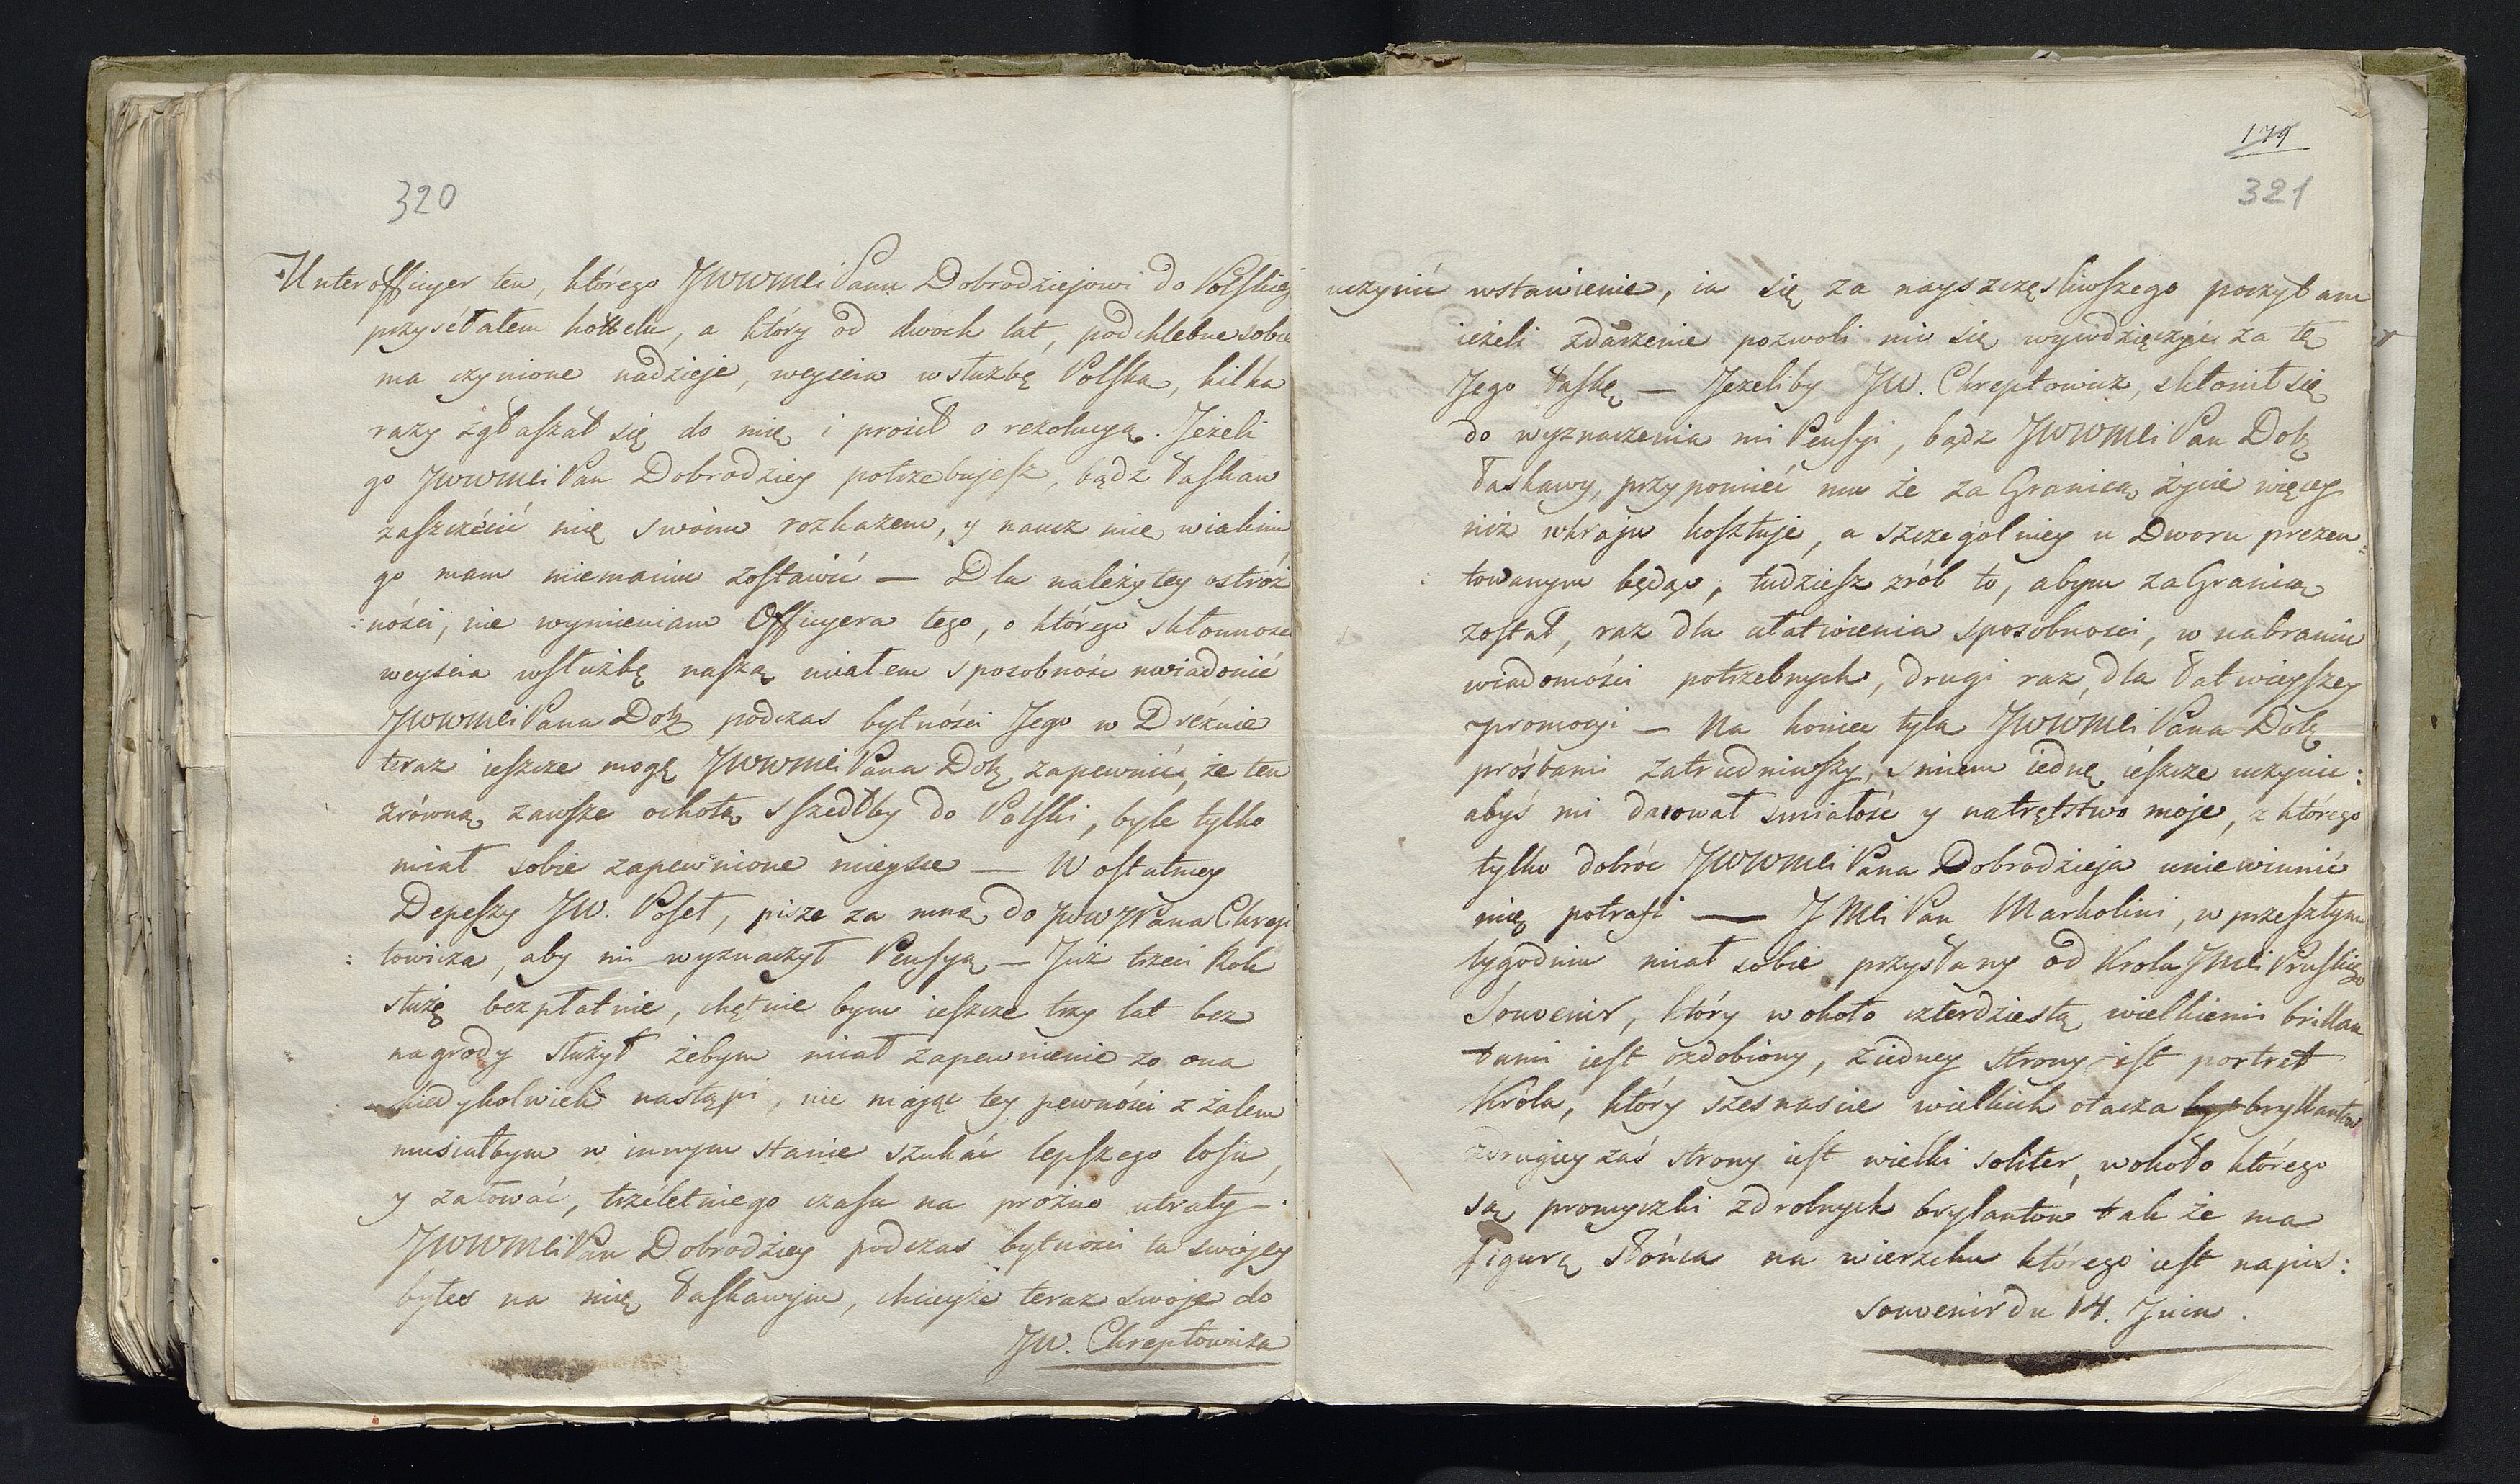 320
Unterofficyer ten, którego JWWMCi Panu Dobrodziejowi do Polskiey
przysétałem hottelu, a który od dwóch lat, podchlebne sobie
ma czynione nadzieje, weyscia w służbę Polska, kilka
razy zgłaszał się do mię i prosił o rezolucyą. Jeżeli
go JWWMCi Pan Dobrodziey potrzebujesz, bądz łaskaw
zaszczécić mię swoim rozkazem, y naucz mie wiakim
go mam mniemaniu zostawić — Dla należytey ostróż
:ności, nie wymieniam Officyera tego, o którego skłonnosci
weyscia w służbę naszą miałem sposobność uwiadomić
JWWMCi Pana Dobr podczas bytności Jego w Dréżnie
teraz ieszcze mogę JWWMCi Pana Dobr zapewnić, że ten
zrówną zawsze ochotą sszedłby do Polski, byle tylko
miał sobie zapewnione mieysce — W ostatniey
Depeszy JW. Poseł, pisze za mną do JWW JPana Chrep
: towicza, aby mi wyznaczył Pensyą — Już trzeci Rok
służę bezpłatnie, chętnie bym ieszcze trzy lat bez
nagrody służył żebym miał zapewnienie zo ona
kiedykolwiek nastąpi, nie mając tey pewności z żalem
musiałbym w innym stanie szukać lepszego losu,
y załować, trzéletniego czasu na prożno utraty —
JWWMCi Pan Dobrodziey podczas bytnosci tu swojey
byłes na mię łaskawym, chcieyże teraz swoje do
JW. Chreptowicza
179
321
uczynić wstawienie, ia się za nayszczęsliwszego poczytam
ieżeli zdarzenie pozwoli mi się wywdzięczyć za tę
Jego łaskę — Jezeliby JW. Chreptowicz, skłonił się
do wyznaczenia mi Pensyi, bądz JWWMCi Pan Dobr
łaskawy, przypomieć mu że za Granicą życie więcey
niż w kraju kosztuje, a szczególniey u Dworu prezen=
: towanym będąc, tudziesz zrób to, abym za Granicą
został, raz dla ułatwienia sposobnosci, w nabraniu
wiadomości potrzebnych, drugi raz, dla łatwieyszey
promocyi — Na koniec tyla JWWMCi Pana Dobr
próśbami zatrudniwszy, smiem iednę ieszcze uczynic:
abyś mi darował smiałość y natręłstwo moje, z którego
tylko dobróc JWWMCi Pana Dobrodzieja uniewinnić
mię potrafi — JMCi Pan Markolini, w przeszłym
tygodniu miał sobie przysłany od Krola JMCi Pruskiego
Souvenir, który w około czterdziestą wielkiemi brillan
tami iest ozdobiony, z iedney strony ist portret
Króla, który szesnascie wielkich otacza bryllantow
z drugiey zaś strony iest wielki soliter, wokoło którego
są promyczki z drobnych brylantow tak że ma
figurę słońca na wierzchu którego iest napis:
souvenir du 14. Juin.